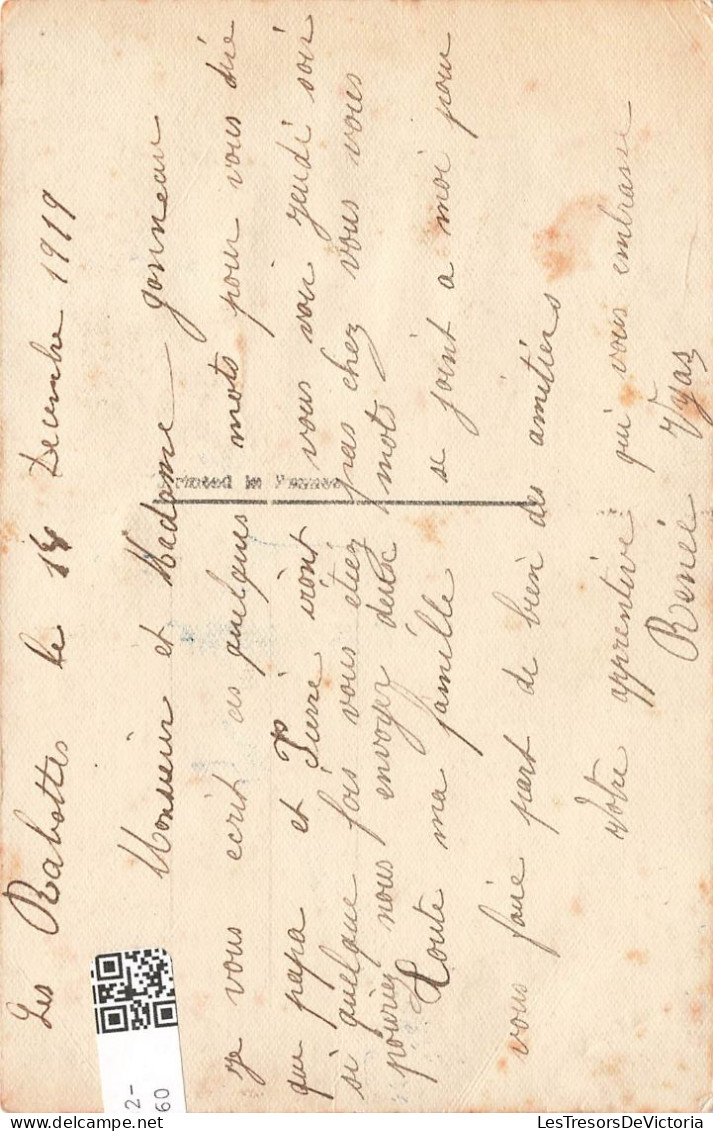 Les Rabottes le 14 Decembre 1919
Monsieur et Madame Gonneau
je vous ecrit ces quelques mots pour vous dire
que papa et Pierre iront vous voir jeudi soir
si quelque fois vous étiez pas chez vous vous
pouriez nous envoyez deux mots
Toute ma famille se joint a moi pour
vous faire part de bien des amitiers
Votre apprentive qui vous embrasse
Renée
Printed in France
2-
60
LesTresorsDeVictoria
LesTresorsDeVictoria.delcampe.net